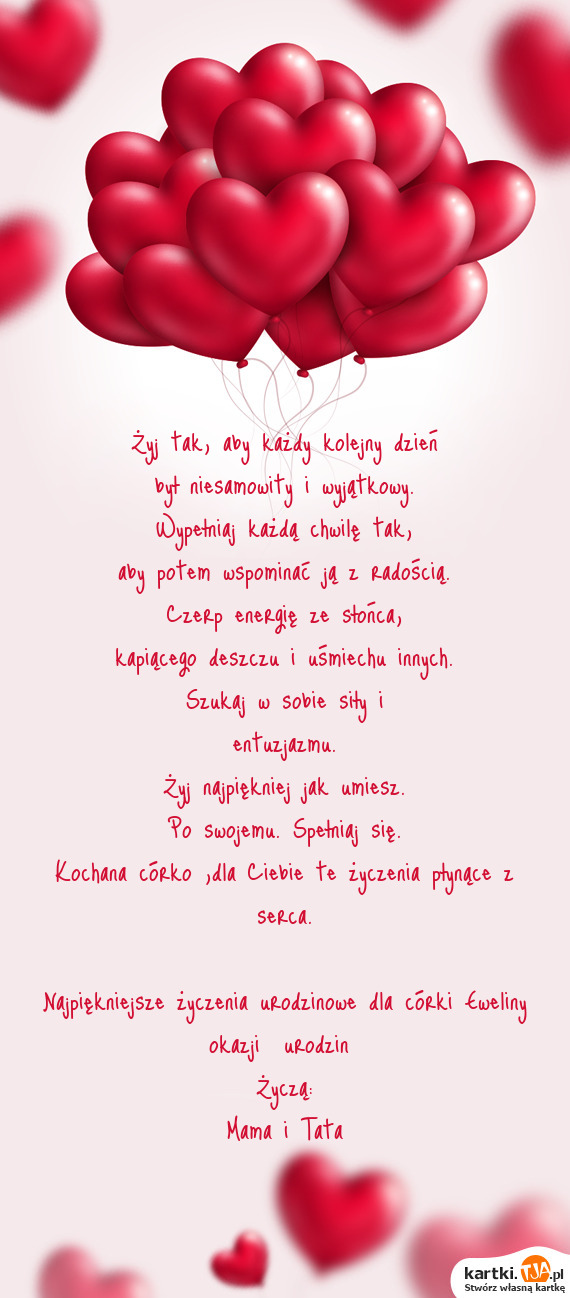 Żyj tak, aby każdy kolejny dzień
był niesamowity i wyjątkowy.
Wypełniaj każdą chwilę tak,
aby potem wspominać ją z radością.
Czerp energię ze słońca,
kapiącego deszczu i uśmiechu innych.
Szukaj w sobie siły i
entuzjazmu.
Żyj najpiękniej jak umiesz.
Po swojemu. Spełniaj się.
Kochana córko ,dla Ciebie te życzenia płynące z
serca.
Najpiękniejsze życzenia urodzinowe dla córki Eweliny
okazji urodzin
Życzą:
Mama i Tata
kartki.TJA.pl
Stwórz własną kartkę